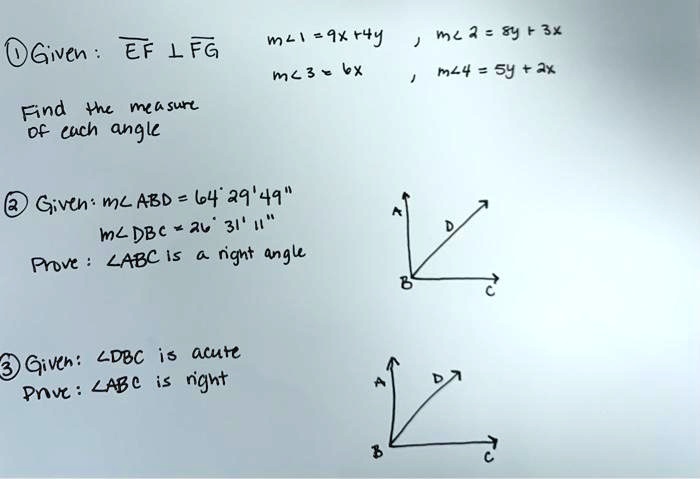 ① Given : EF ⊥ FG
m<1 = 9x + 4y , m<2 = 8y + 3x
m<3 = 6x , m<4 = 5y + 2x
Find the measure
of each angle
② Given: m∠ ABD = 64° 29' 49"
m∠ DBC = 26° 31' 11"
Prove : ∠ABC is a right angle
A
D
B
C
③ Given: ∠DBC is acute
Prove : ∠ABC is right
A
D
B
C